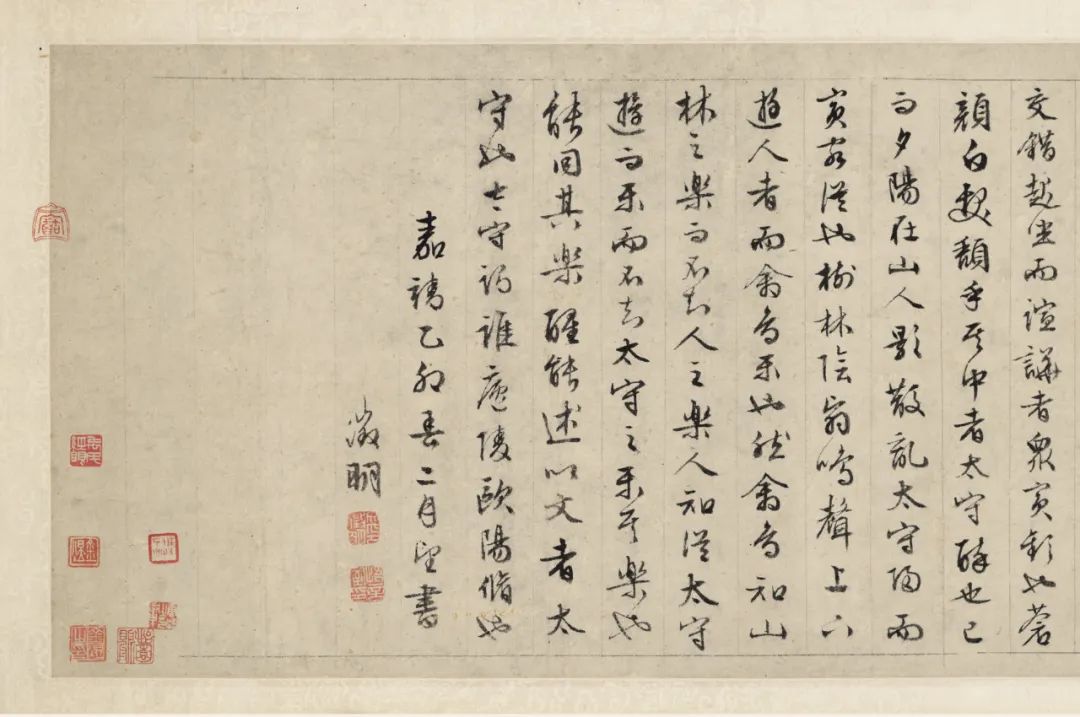 交錯起坐而諠譁者眾賓歡也蒼
顏白髮頹乎其中者太守醉也已
而夕陽在山人影散亂太守歸而
賓客從也樹林陰翳鳴聲上下
遊人去而禽鳥樂也然禽鳥知山
林之樂而不知人之樂人知從太守
遊而樂而不知太守之樂其樂也
能同其樂醒能述以文者太
守也太守謂誰廬陵歐陽脩也
嘉靖乙卯春二月望書
徵明